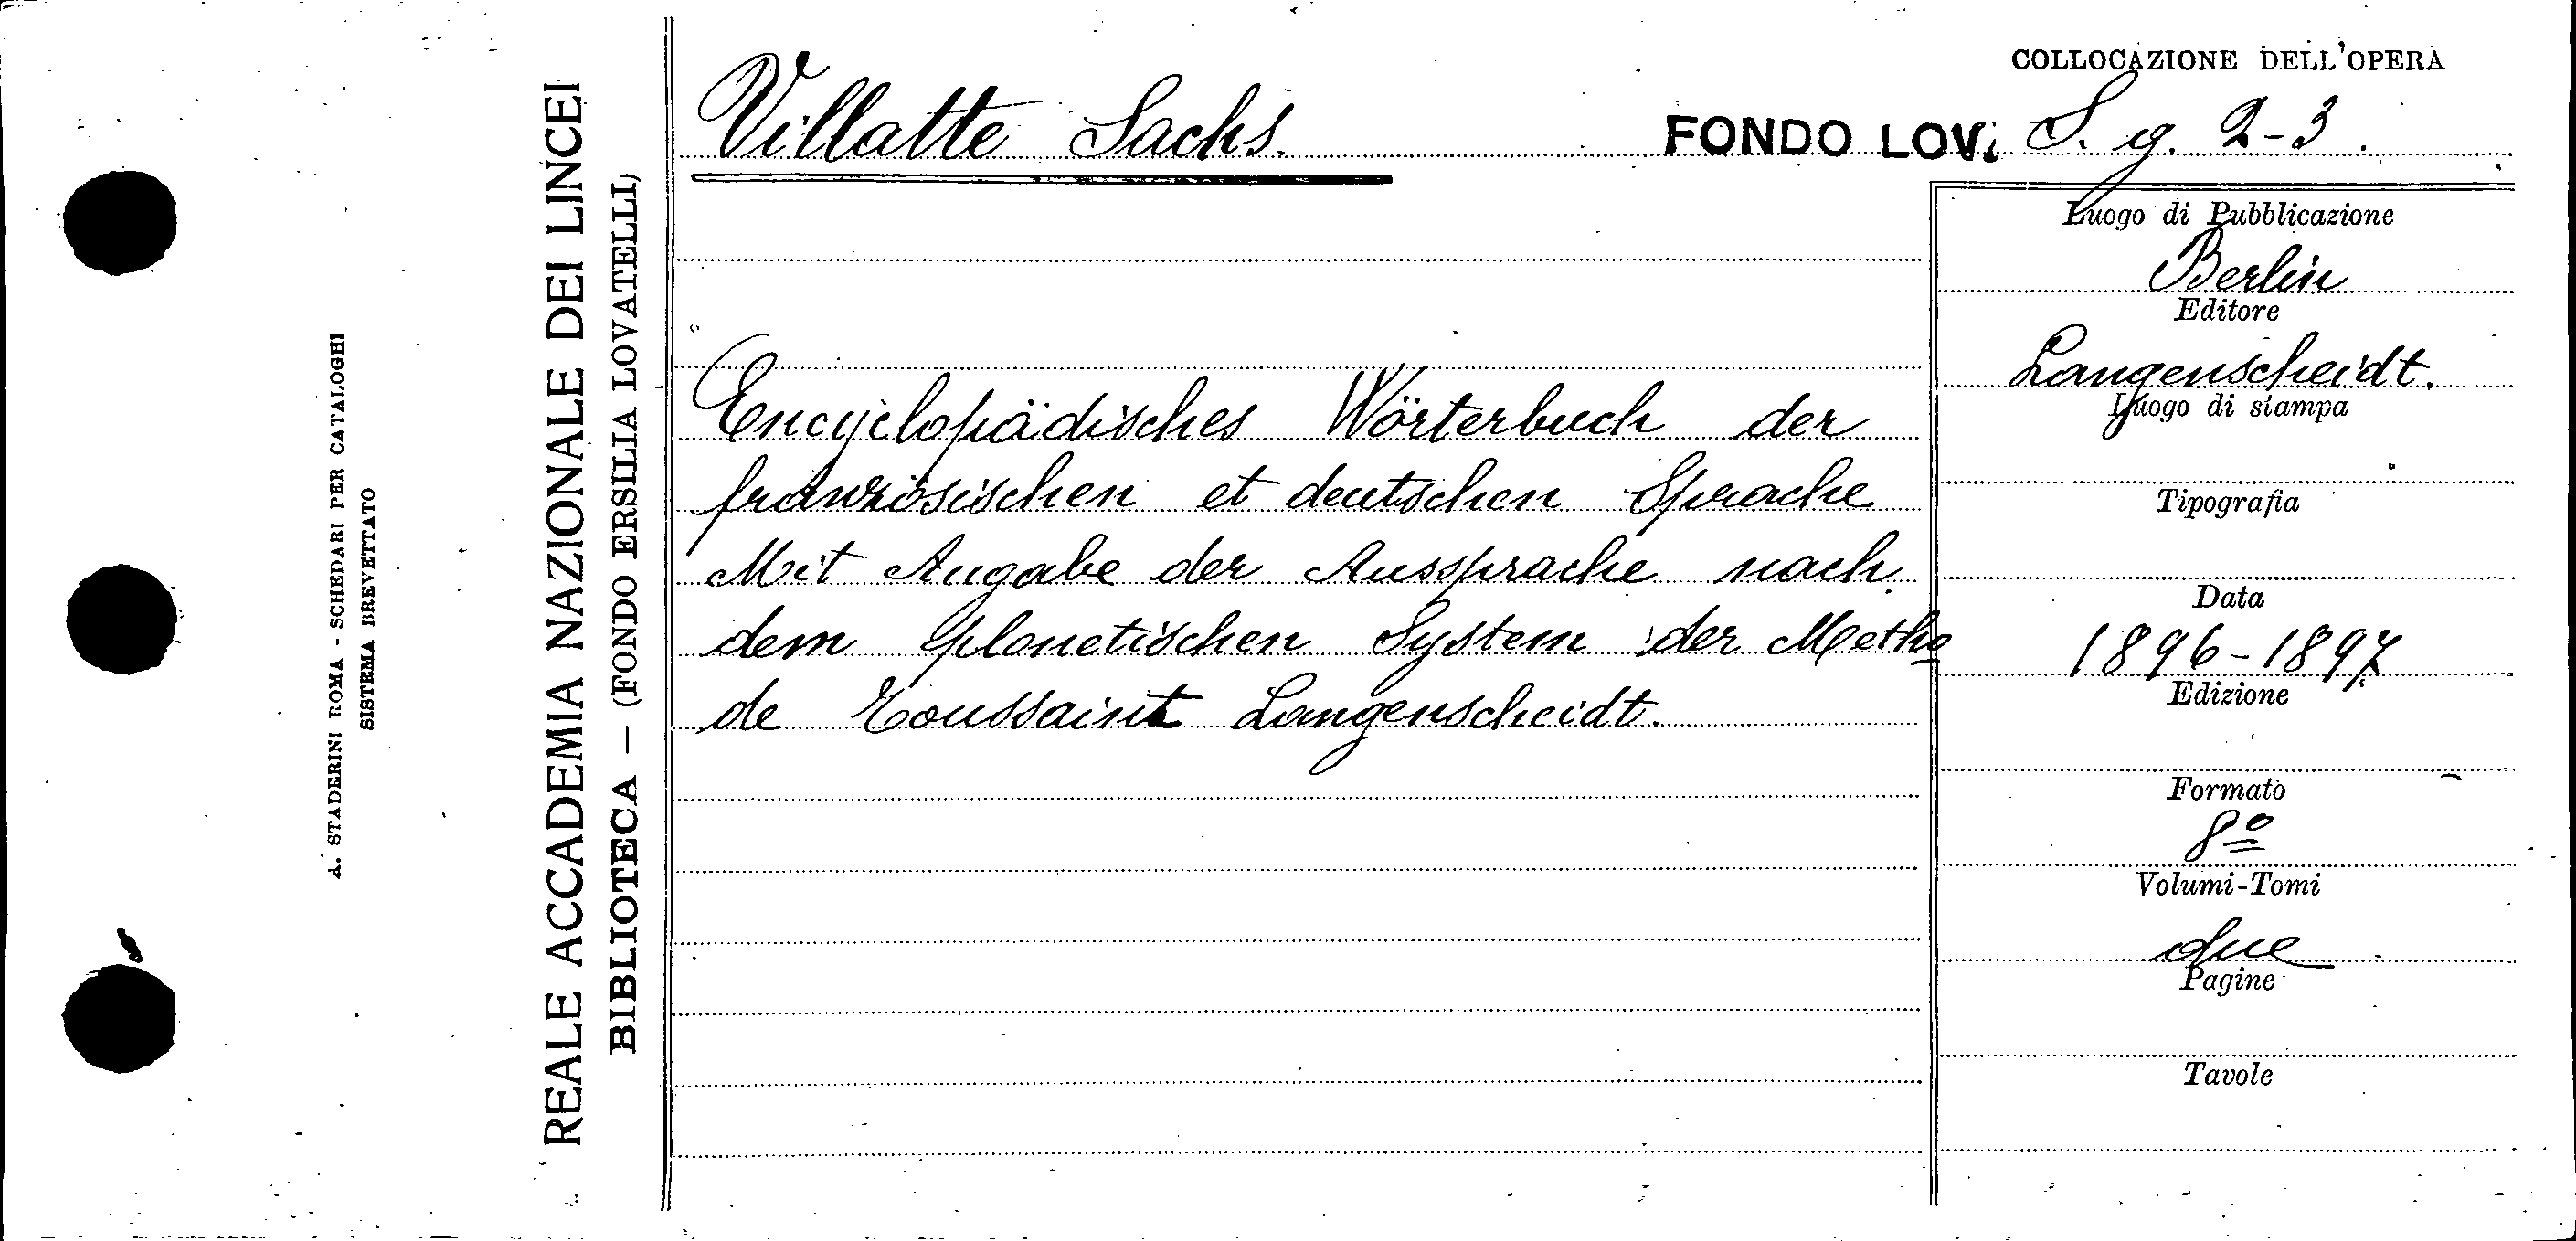 A. STADERINI ROMA - SCHEDARI PER CATALOGHI
SISTEMA BREVETTATO
REALE ACCADEMIA NAZIONALE DEI LINCEI
BIBLIOTECA — (FONDO ERSILIA LOVATELLI)
Villatte Sachs.
COLLOCAZIONE DELL'OPERA
FONDO LOV. S. g. 2-3.
Encyclopädisches Wörterbuch der
französischen et deutschen Sprache
Mit Angabe der Aussprache nach
dem plonetischen System der Metho
de Toussaint Langenscheidt.
Luogo di Pubblicazione
Berlin
Editore
Langenscheidt.
Luogo di stampa
Tipografia
Data
1896-1897
Edizione
Formato
8º
Volumi-Tomi
due
Pagine
Tavole